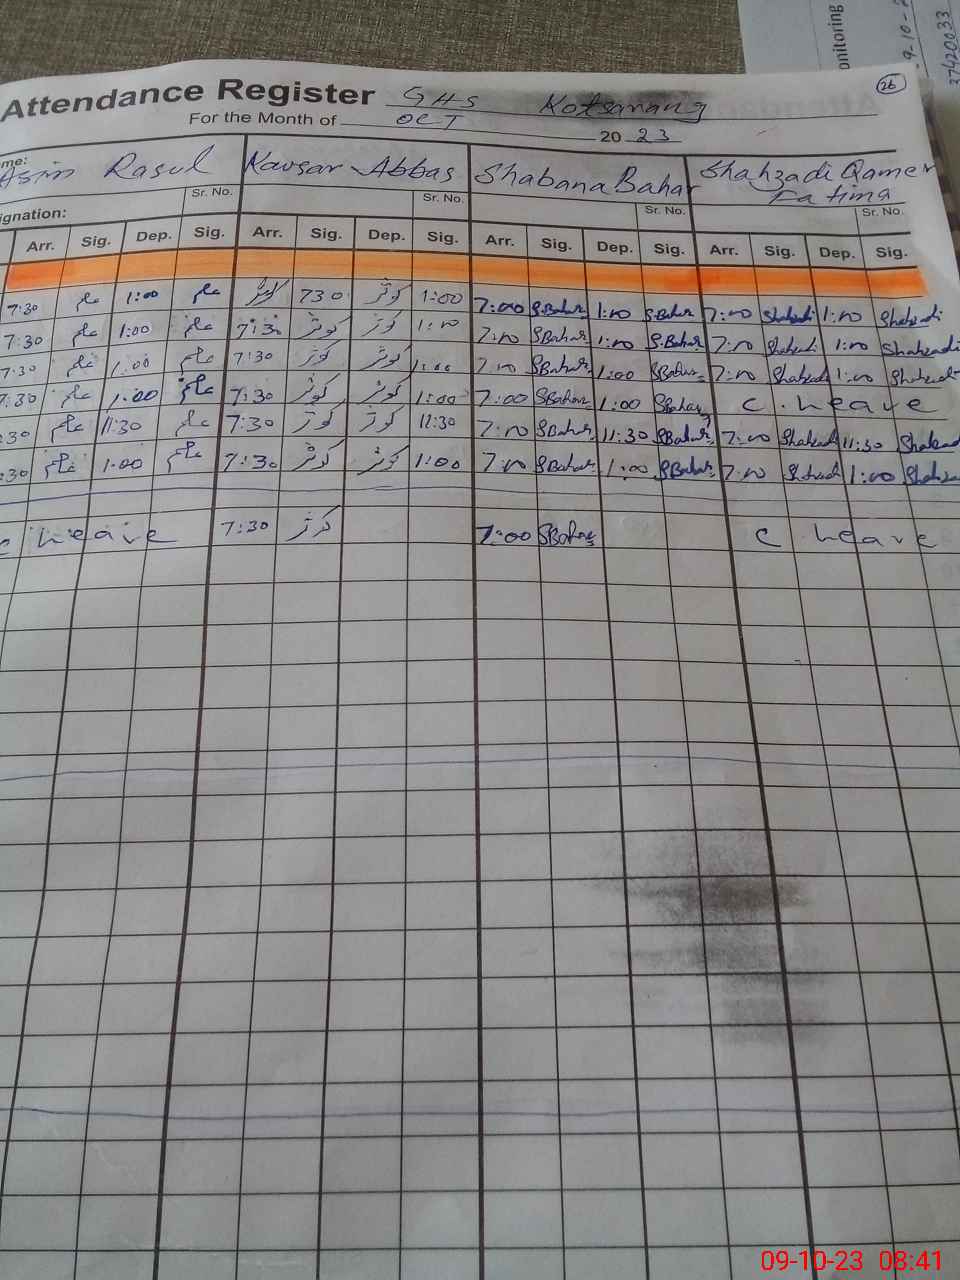 onitoring
9-10-2
37420033
26
Attendance Register GHS Kotsarang
For the Month of OCT 20 23
me: Asim Rasul Kavsar Abbas Shabana Bahar Shahzadi Qamer Fatima
Sr. No. Sr. No. Sr. No. Sr. No.
ignation:
Arr. Sig. Dep. Sig. Arr. Sig. Dep. Sig. Arr. Sig. Dep. Sig. Arr. Sig. Dep. Sig.
7:30 1:00 کوثر 730 کوثر 1:00 7:00 SBahar 1:00 SBahar 7:00 Shahzadi 1:00 Shahzadi
7:30 1:00 7:30 کوثر کوثر 1:00 7:00 SBahar 1:00 SBahar 7:00 Shahzadi 1:00 Shahzadi
7:30 1:00 7:30 کوثر کوثر 1:00 7:00 SBahar 1:00 SBahar 7:00 Shahzadi 1:00 Shahzadi
7:30 1:00 7:30 کوثر کوثر 1:00 7:00 SBahar 1:00 SBahar C. Leave
:30 11:30 7:30 کوثر کوثر 11:30 7:00 SBahar 11:30 SBahar 7:00 Shahzadi 11:30 Shahzad
:30 1:00 7:30 کوثر کوثر 1:00 7:00 SBahar 1:00 SBahar 7:00 Shahzadi 1:00 Shahza
C Leave 7:30 کوثر 7:00 SBahar C Leave
09-10-23 08:41